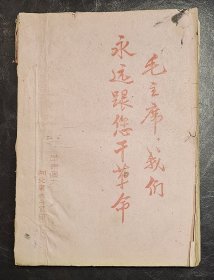 毛主席,我们
永远跟您干革命